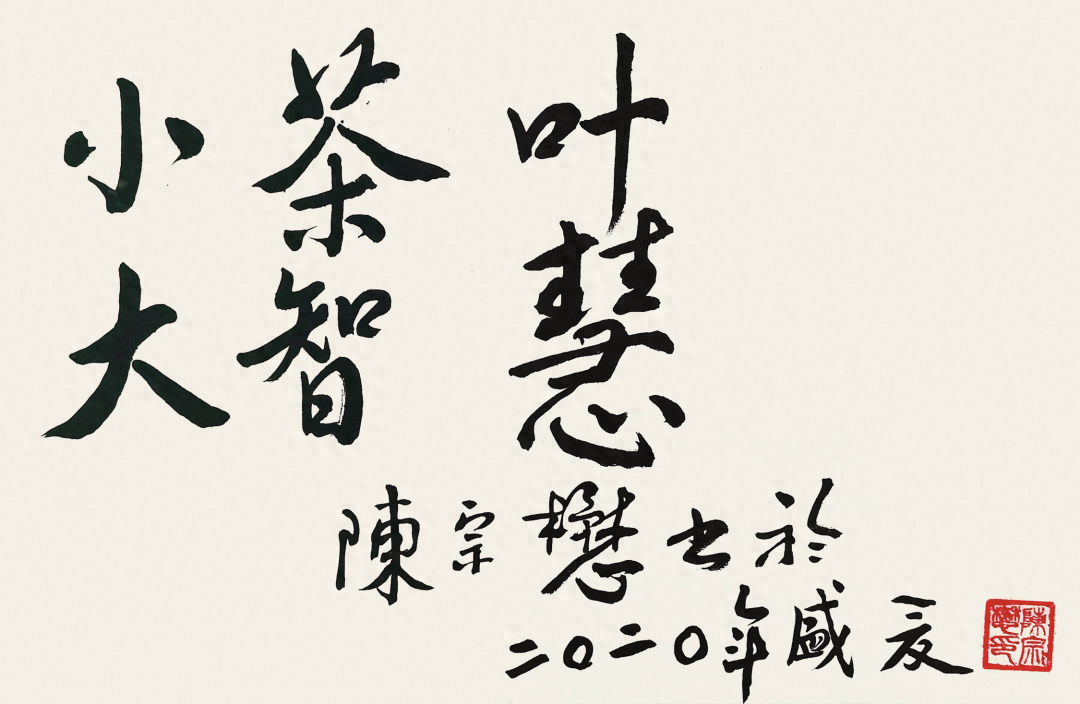 小茶叶
大智慧
陳宗懋书於
二〇二〇年盛夏
陳宗懋印